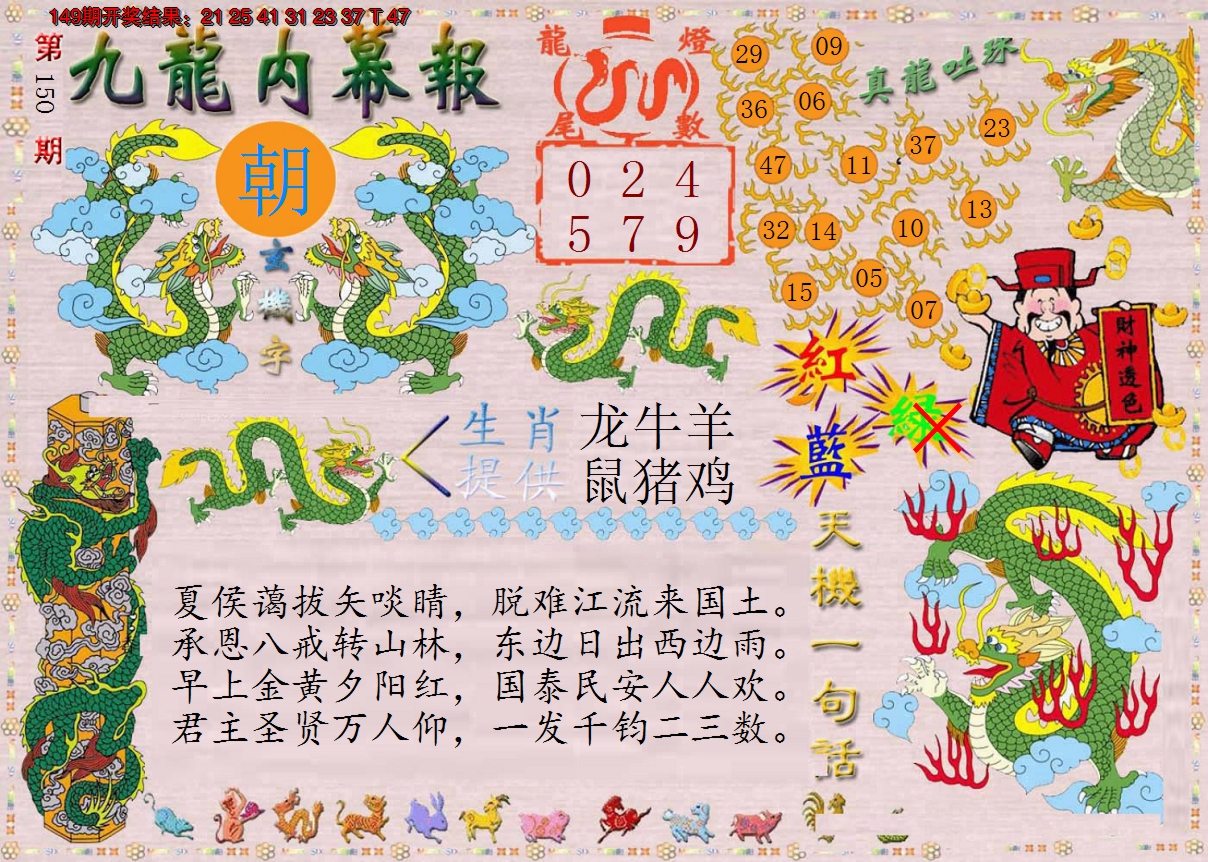 149期开奖结果：21 25 41 31 23 37 T 47
第150期
九龍内幕報
朝
玄機字
龍燈
尾數
0 2 4
5 7 9
真龍吐珠
29 09
36 06
47 11 37 23
32 14 10 13
15 05 07
紅
綠
藍
財神透色
生肖 龙牛羊
提供 鼠猪鸡
天機一句话
夏侯蔼拔矢啖睛，脱难江流来国土。
承恩八戒转山林，东边日出西边雨。
早上金黄夕阳红，国泰民安人人欢。
君主圣贤万人仰，一发千钧二三数。